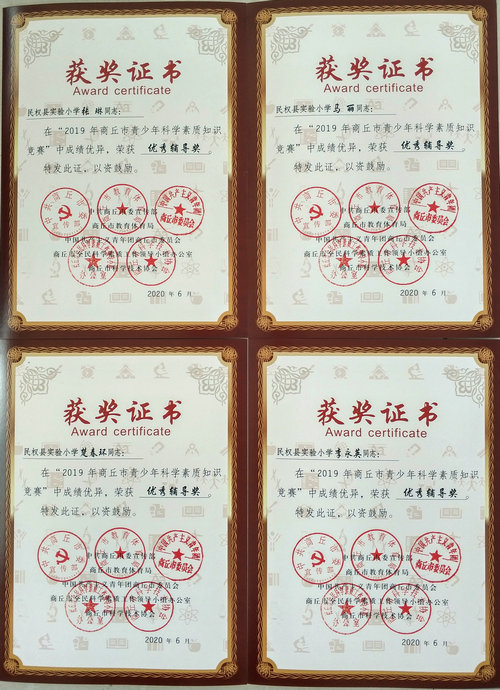 获奖证书
Award certificate
民权县实验小学张琳同志：
在“2019年商丘市青少年科学素质知识
竞赛”中成绩优异，荣获 优秀辅导奖 。
特发此证，以资鼓励。
中共商丘市委宣传部
商丘市教育体育局
中国共产主义青年团商丘市委员会
商丘市全民科学素质工作领导小组办公室
商丘市科学技术协会
2020年6月
获奖证书
Award certificate
民权县实验小学马丽同志：
在“2019年商丘市青少年科学素质知识
竞赛”中成绩优异，荣获 优秀辅导奖 。
特发此证，以资鼓励。
中共商丘市委宣传部
商丘市教育体育局
中国共产主义青年团商丘市委员会
商丘市全民科学素质工作领导小组办公室
商丘市科学技术协会
2020年6月
获奖证书
Award certificate
民权县实验小学楚春环同志：
在“2019年商丘市青少年科学素质知识
竞赛”中成绩优异，荣获 优秀辅导奖 。
特发此证，以资鼓励。
中共商丘市委宣传部
商丘市教育体育局
中国共产主义青年团商丘市委员会
商丘市全民科学素质工作领导小组办公室
商丘市科学技术协会
2020年6月
获奖证书
Award certificate
民权县实验小学李永英同志：
在“2019年商丘市青少年科学素质知识
竞赛”中成绩优异，荣获 优秀辅导奖 。
特发此证，以资鼓励。
中共商丘市委宣传部
商丘市教育体育局
中国共产主义青年团商丘市委员会
商丘市全民科学素质工作领导小组办公室
商丘市科学技术协会
2020年6月